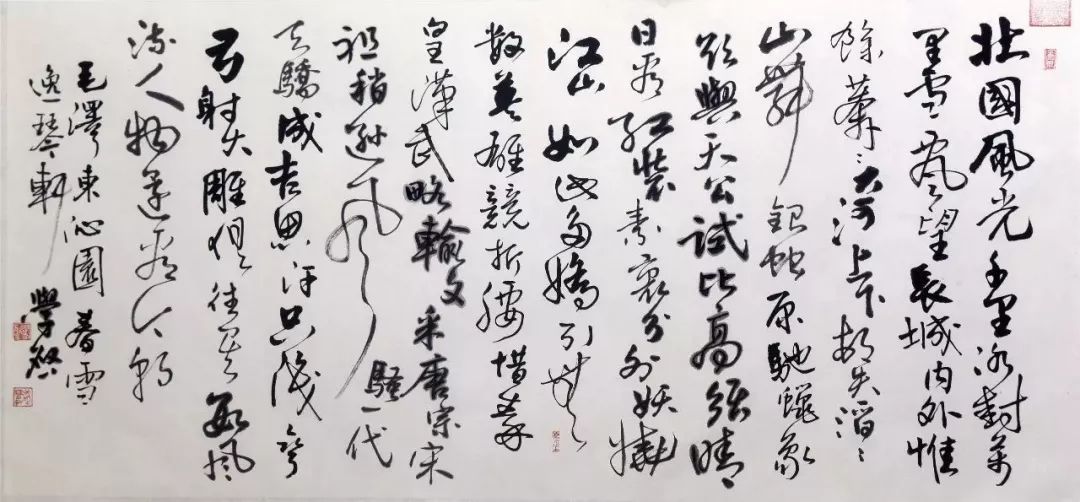 北國風光千里冰封萬
里雪飄望長城内外惟
餘莽〻大河上下頓失滔〻
山舞銀蛇原馳蠟象
欲與天公試比高須晴
日看紅裝素裹分外妖嬈
江山如此多嬌引無
數英雄競折腰惜秦
皇漢武略輸文采唐宗宋
祖稍遜風騷一代
天驕成吉思汗只識彎
弓射大雕俱往矣數風
流人物還看今朝
毛澤東沁園春雪
逸琴軒學